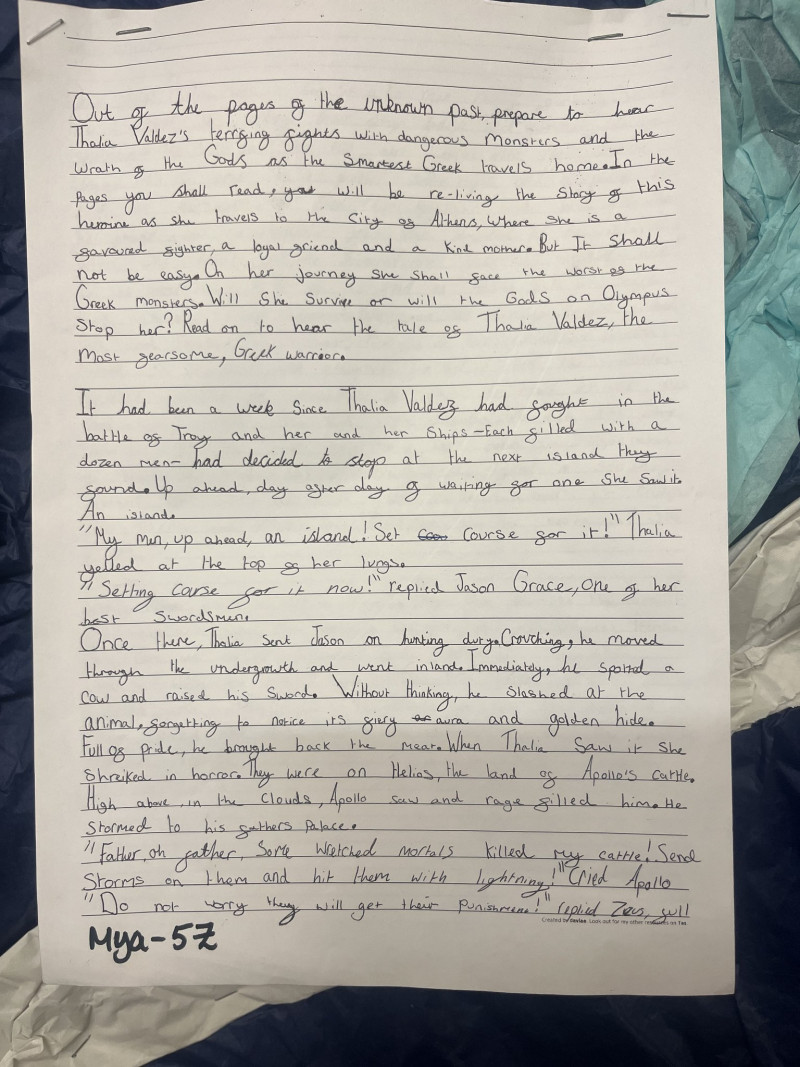 Out of the pages of the unknown past, prepare to hear
Thalia Valdez's terrfging fights with dangerous Monsters and the
Wrath of the Gods as the Smartest Greek travels home. In the
Pages you shall read, you will be re-living the Story of this
heroine as she travels to the City of Athens, Where she is a
favoured fighter, a loyal friend and a Kind mother. But It Shall
not be easy. On her journey She Shall face the worst of the
Greek monsters. Will She Survive or will the Gods on Olympus
Stop her? Read on to hear the tale of Thalia Valdez, the
Most fearsome, Greek warrior.
It had been a week Since Thalia Valdez had fought in the
battle of Troy and her and her Ships -Each filled with a
dozen men- had decided to stop at the next island they
found. Up ahead, day after day of waiting for one She Saw it.
An island.
"My men, up ahead, an island! Set Course for it!" Thalia
yelled at the top of her lungs.
"Setting Course for it now!" replied Jason Grace, One of her
best Swordsmen.
Once there, Thalia Sent Jason on hunting duty. Crouching, he moved
through the undergrowth and went inland. Immediately, he spotted a
Cow and raised his Sword. Without thinking, he Slashed at the
animal, forgetting to notice its fiery aura and golden hide.
Full of pride, he brought back the meat. When Thalia Saw it She
Shreiked in horror. They were on Helios, the land of Apollo's Cattle.
High above, in the Clouds, Apollo saw and rage filled him. He
Stormed to his fathers Palace.
"Father, oh father, Some Wretched mortals killed my cattle! Send
Storms on them and hit them with lightning!" Cried Apollo
"Do not worry they will get their Punishment!" replied Zeus, full
Created by Look out for my other resources on Tes
Mya-5Z